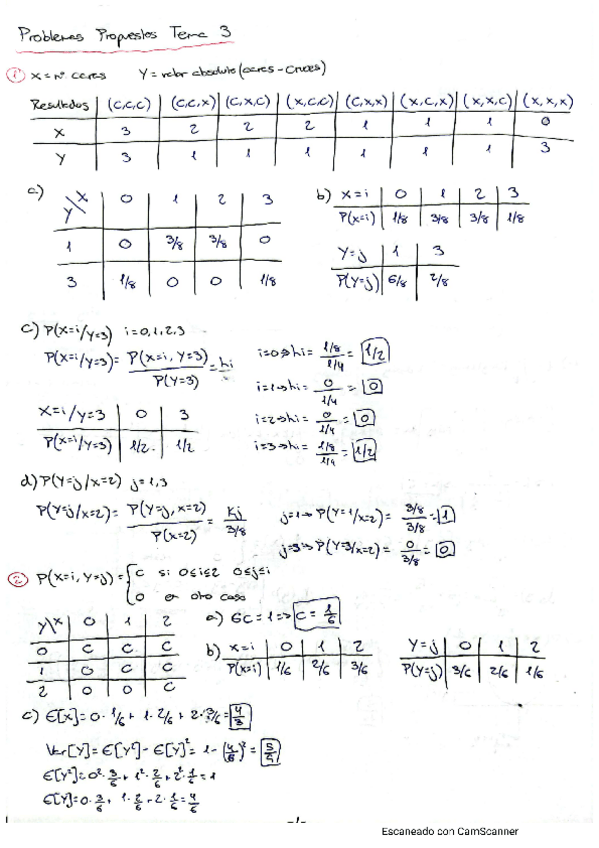 Problemas Propuestos Tema 3
① X = nº caras Y = valor absoluto (caras - cruces)
Resultados (C,C,C) (C,C,X) (C,X,C) (X,C,C) (C,X,X) (X,C,X) (X,X,C) (X,X,X)
X 3 2 2 2 1 1 1 0
Y 3 1 1 1 1 1 1 3
a) Y\X 0 1 2 3
1 0 3/8 3/8 0
3 1/8 0 0 1/8
b) X=i 0 1 2 3
P(X=i) 1/8 3/8 3/8 1/8
Y=j 1 3
P(Y=j) 6/8 2/8
c) P(X=i/Y=3) i=0,1,2,3
P(X=i/Y=3) = P(X=i, Y=3) / P(Y=3) = hi
i=0 ⇒ hi = 1/8 / 1/4 = 1/2
i=1 ⇒ hi = 0 / 1/4 = 0
i=2 ⇒ hi = 0 / 1/4 = 0
i=3 ⇒ hi = 1/8 / 1/4 = 1/2
X=i/Y=3 0 3
P(X=i/Y=3) 1/2 1/2
d) P(Y=j/X=2) j=1,3
P(Y=j/X=2) = P(Y=j, X=2) / P(X=2) = Kj / 3/8
j=1 → P(Y=1/X=2) = 3/8 / 3/8 = 1
j=3 → P(Y=3/X=2) = 0 / 3/8 = 0
② P(X=i, Y=j) = { C si 0≤i≤2 0≤j≤i
0 en otro caso
Y\X 0 1 2
0 C C C
1 0 C C
2 0 0 C
a) 6C = 1 ⇒ C = 1/6
b) X=i 0 1 2
P(X=i) 1/6 2/6 3/6
Y=j 0 1 2
P(Y=j) 3/6 2/6 1/6
c) E[X] = 0·1/6 + 1·2/6 + 2·3/6 = 4/3
Var[Y] = E[Y²] - E[Y]² = 1 - (4/6)² = 5/9
E[Y²] = 0²·3/6 + 1²·2/6 + 2²·1/6 = 1
E[Y] = 0·3/6 + 1·2/6 + 2·1/6 = 4/6
-1-
Escaneado con CamScanner